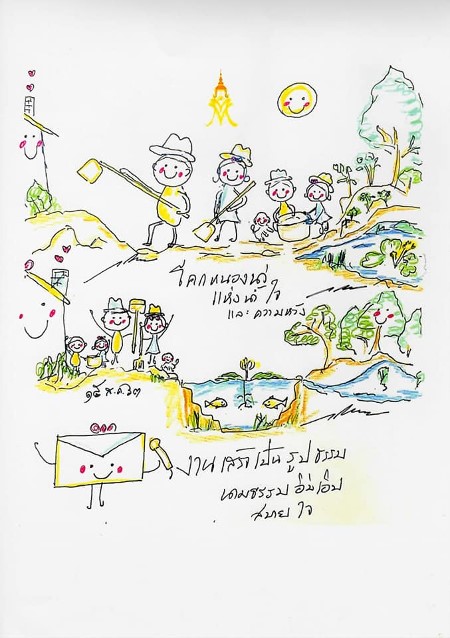 โคกหนองนา
แห่งน้ำใจ
และความหวัง
๑๕ ส.ค. ๖๓
งานเสร็จเป็นรูปธรรม
นามธรรม อิ่มเอิบ
สบายใจ